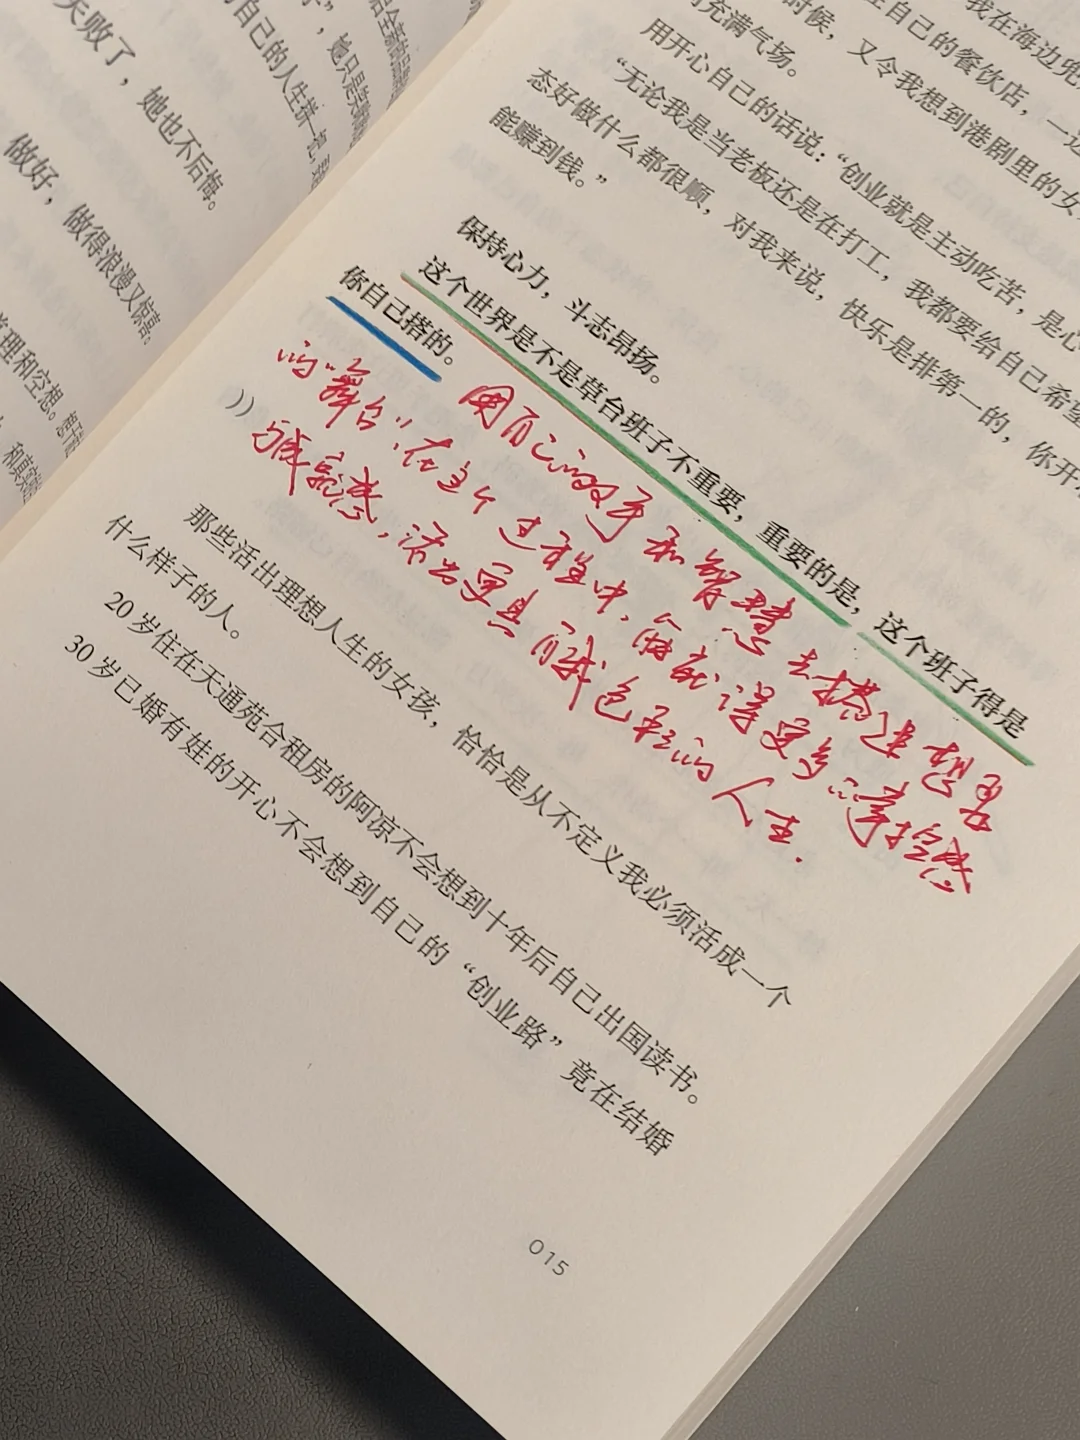 失败了，她也不后悔。
做好，做得浪漫又惊喜。
理和空想。
我在海边兜
在自己的餐饮店，一边
时候，又令我想到港剧里的女
充满气场。
用开心自己的话说：“创业就是主动吃苦，是心
“无论我是当老板还是在打工，我都要给自己希望
态好做什么都很顺，对我来说，快乐是排第一的，你开
能赚到钱。”
保持心力，斗志昂扬。
这个世界是不是草台班子不重要，重要的是，这个班子得是
你自己搭的。
用自己的双手和智慧去搭建想要
的“舞台”，在这个过程中，你就得更多“掌控感
与成就感”，活出更具有色彩的人生.
那些活出理想人生的女孩，恰恰是从不定义我必须活成一个
什么样子的人。
20 岁住在天通苑合租房的阿凉不会想到十年后自己出国读书。
30 岁已婚有娃的开心不会想到自己的“创业路”竟在结婚
015